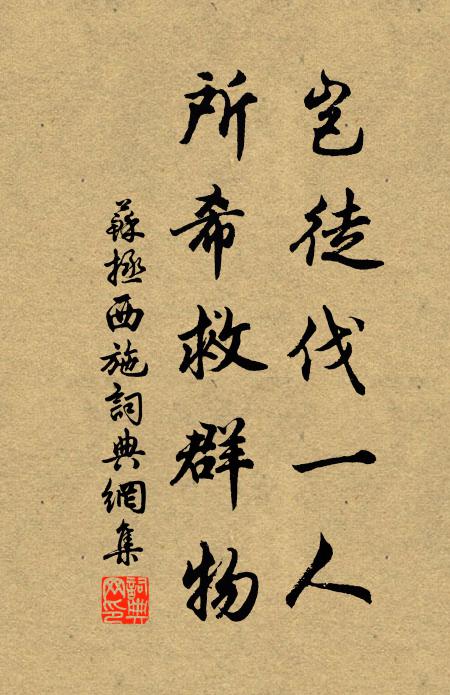 岂徒伐一人
所希救群物
蘇拯西施詞典網集
詞典网印